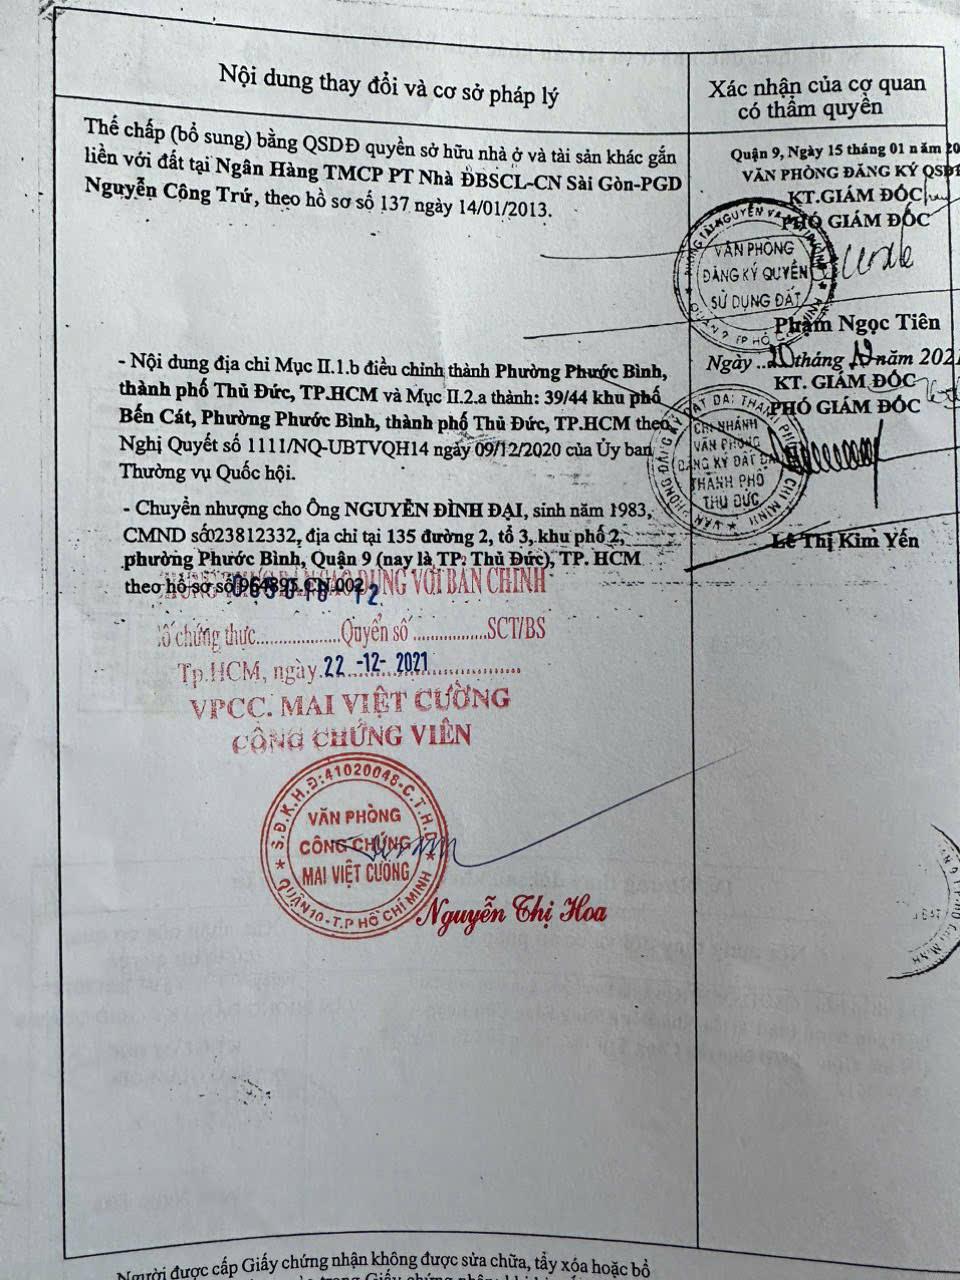 Nội dung thay đổi và cơ sở pháp lý
Xác nhận của cơ quan
có thẩm quyền
Thế chấp (bổ sung) bằng QSDĐ quyền sở hữu nhà ở và tài sản khác gắn
liền với đất tại Ngân Hàng TMCP PT Nhà ĐBSCL-CN Sài Gòn-PGD
Nguyễn Công Trứ, theo hồ sơ số 137 ngày 14/01/2013.
Quận 9, Ngày 15 tháng 01 năm 20
VĂN PHÒNG ĐĂNG KÝ QSDĐ
KT.GIÁM ĐỐC
PHÓ GIÁM ĐỐC
VĂN PHÒNG
ĐĂNG KÝ QUYỀN
SỬ DỤNG ĐẤT
QUẬN 9 TP HỒ
Phạm Ngọc Tiên
- Nội dung địa chỉ Mục II.1.b điều chỉnh thành Phường Phước Bình,
thành phố Thủ Đức, TP.HCM và Mục II.2.a thành: 39/44 khu phố
Bến Cát, Phường Phước Bình, thành phố Thủ Đức, TP.HCM theo
Nghị Quyết số 1111/NQ-UBTVQH14 ngày 09/12/2020 của Ủy ban
Thường vụ Quốc hội.
Ngày ..20 tháng 12 năm 2021
KT. GIÁM ĐỐC
PHÓ GIÁM ĐỐC
CHI NHÁNH
VĂN PHÒNG
ĐĂNG KÝ ĐẤT ĐAI
THÀNH PHỐ
THỦ ĐỨC
Lê Thị Kim Yến
- Chuyển nhượng cho Ông NGUYỄN ĐÌNH ĐẠI, sinh năm 1983,
CMND số023812332, địa chỉ tại 135 đường 2, tổ 3, khu phố 2,
phường Phước Bình, Quận 9 (nay là TP. Thủ Đức), TP. HCM
theo hồ sơ số 964895.CN.002
BẢN CHÍNH
Số chứng thực..................Quyển số ................SCT/BS
Tp.HCM, ngày.22 -12- 2021....................
VPCC. MAI VIỆT CƯỜNG
CÔNG CHỨNG VIÊN
S.Đ.K.H.Đ:41020048-C.T.H.Đ
VĂN PHÒNG
CÔNG CHỨNG
MAI VIỆT CƯỜNG
QUẬN 10 - T.P HỒ CHÍ MINH
Nguyễn Thị Hoa
Người được cấp Giấy chứng nhận không được sửa chữa, tẩy xóa hoặc bổ